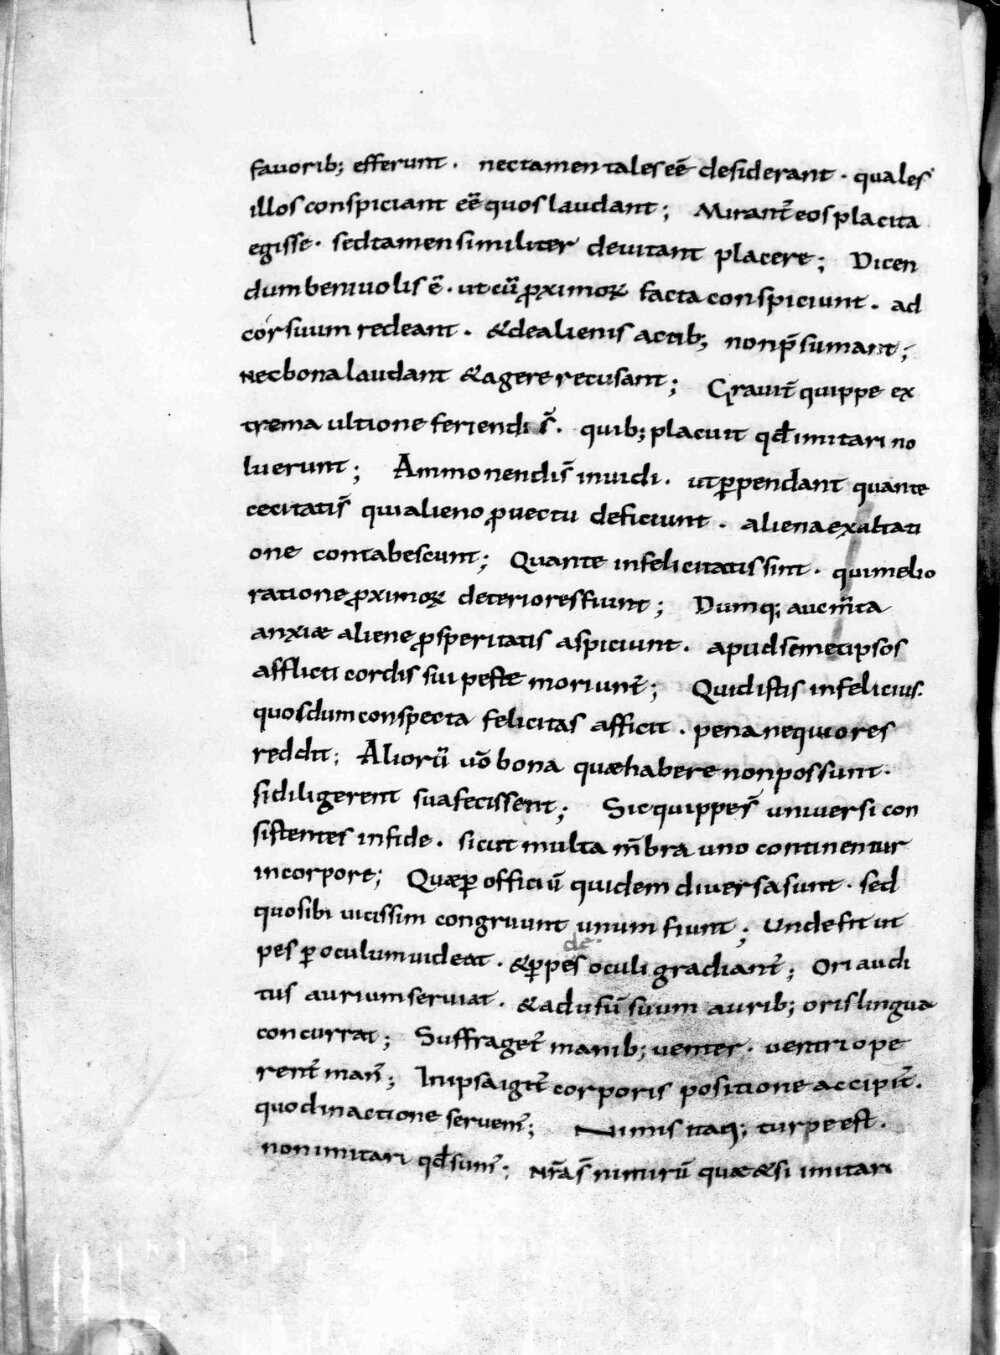 favorib; efferunt . nec tamen tales eē desiderant . quales
illos conspiciant eē quos laudant ; Mirant̄ eos placita
egisse . sed tamen similiter devitant placere ; Dicen
dum benivolis ē . ut cū ꝓximoꝝ facta conspiciunt . ad
cor suum redeant . & de alienis actib; non p̄sumant ;
Nec bona laudant & agere recusant ; Gravit̄ quippe ex
trema ultione feriendi s̄ . quib; placuit qđ imitari no
luerunt ; Ammonendi s̄ invidi . ut ꝑpendant quante
cecitatis̄ qui alieno ꝓvectu deficiunt . aliena exaltati
one contabescunt ; Quante infelicitatis sint . qui melio
ratione ꝓximoꝝ deteriores fiunt ; Dumq; aucm̄ta
anxiæ aliene ꝓsperitatis aspiciunt . apud semetipsos
afflicti cordis sui peste moriunt̄ ; Quid istis infelicius .
quos dum conspecta felicitas afficit . pena nequiores
reddit ; Aliorū vō bona quæ habere non possunt .
si diligerent sua fecissent ; Sic quippe s̄ universi con
sistentes in fide . sicut multa m̄bra uno continentur
in corpore ; Quæ ꝑ officiū quidem diversa sunt . sed
quo sibi vicissim congruunt unum fiunt ; Unde fit ut
de .
pes ꝑ oculum videat . & ꝑ pes oculi gradiant̄ ; Ori audi
tus aurium serviat . & ad usū suum aurib; oris lingua
concurrat ; Suffraget̄ manib; venter . ventri ope
rent̄ man̄ ; In ipsa igit̄ corporis positione accipim̄ .
quod in actione servem̄ ; Nimis itaq; turpe est .
non imitari qđ sum̄ ; Nr̄a s̄ nimirū quæ & si imitari